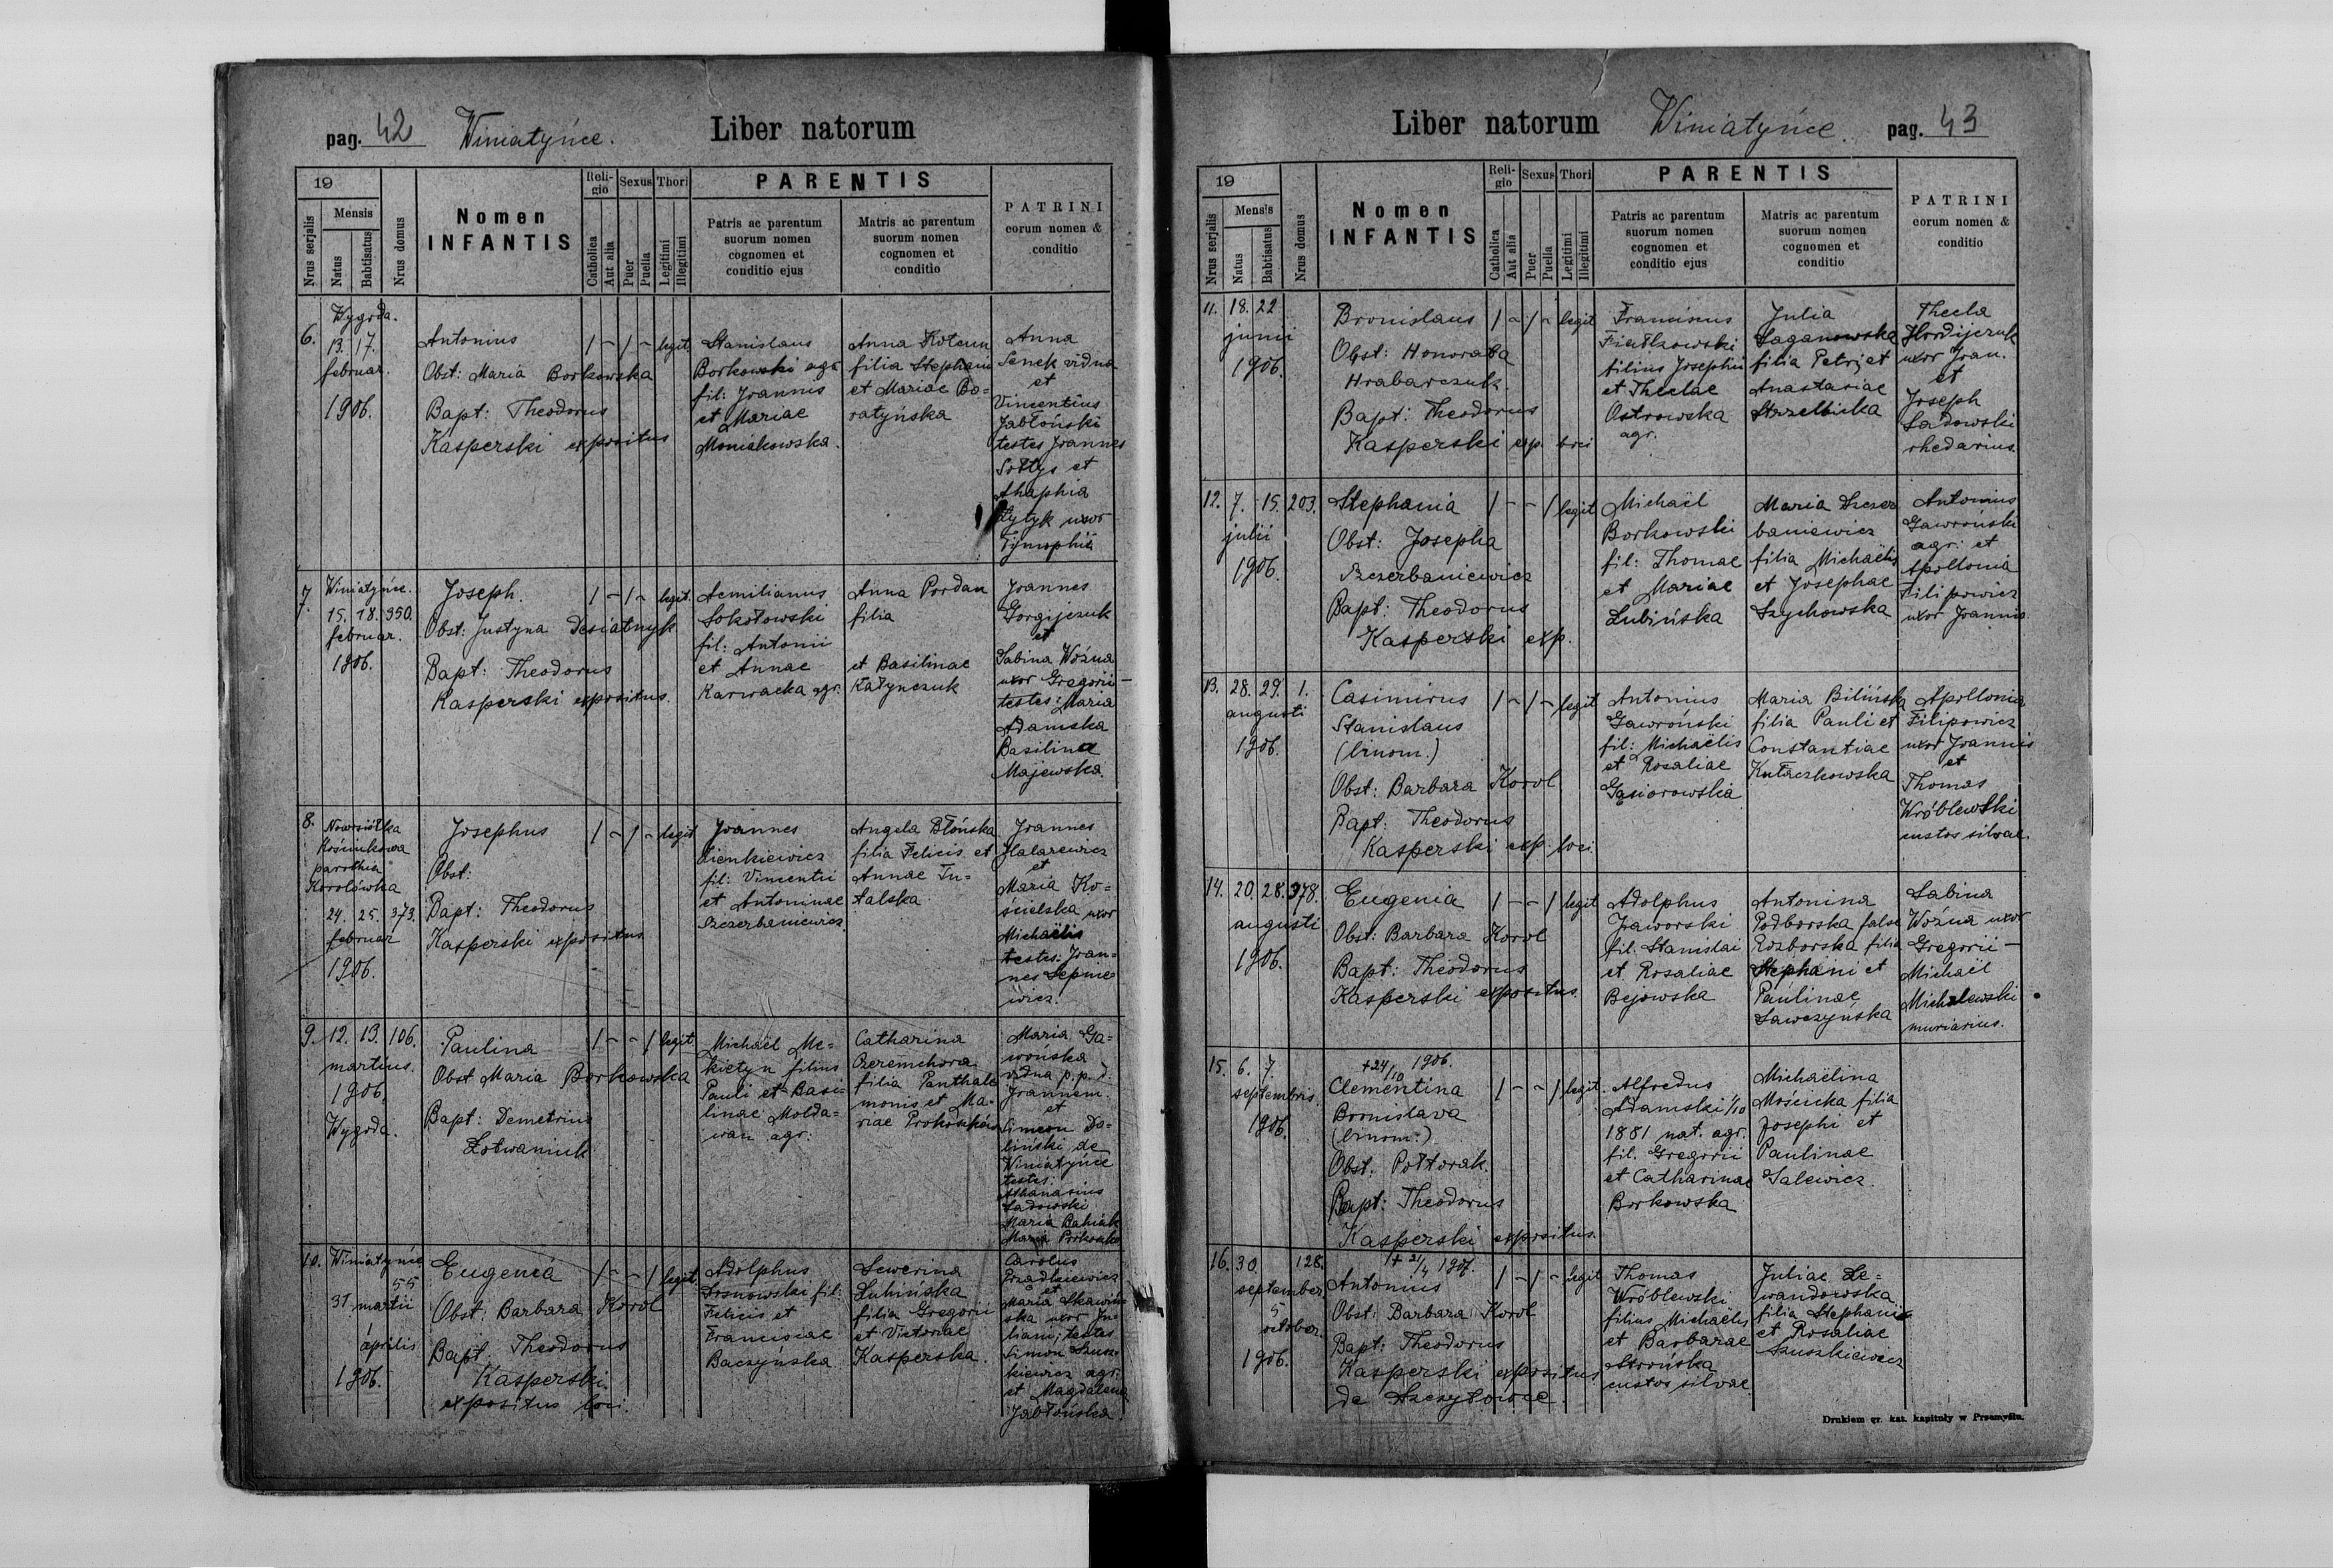 pag. 42 Winiatyńce. Liber natorum
19
Nrus serjalis
Mensis
Natus
Babtisatus
Nrus domus
Nomen
INFANTIS
Religio
Catholica
Aut alia
Sexus
Puer
Puella
Thori
Legitimi
Illegitimi
PARENTIS
Patris ac parentum
suorum nomen
cognomen et
conditio ejus
Matris ac parentum
suorum nomen
cognomen et
conditio
PATRINI
eorum nomen &
conditio
6.
Wygoda.
13. 17.
februar.
1906.
Antonius
Obst: Maria Borkowska
Bapt: Theodorus
Kasperski expositus
1 - 1 - legit.
Stanislaus
Borkowski agr.
fil: Joannis
et Mariae
Anna
filia Stephani
et Mariae Bo=
ratyńska
Anna
Senek vidua
et
Vincentius
Jabłoński
testes Joannes
Sołtys et
Ahaphia
uxor
7.
Winiatyńce.
15. 18. 350.
februar.
1906.
Joseph.
Obst: Justyna Desiatnyk
Bapt: Theodorus
Kasperski expositus.
1 - 1 - legit.
Aemilianus
Sokołowski
fil: Antonii
et Annae
Karwacka agr.
Anna Pordan
filia
et Basilinae
Katynczuk
Joannes
Gorgijczuk
et
Sabina Woźna
uxor Gregorii
testes: Maria
Adamska
Basilina
Majewska.
8.
Nowosiółka
Kościukowa
parochia
Korolówka
24. 25. 373.
februar
1906.
Josephus
Obst:
Bapt: Theodorus
Kasperski expositus
1 - 1 - legit
Joannes
Sienkiewicz
fil: Vincentii
et Antoninae
Szczerbaniewicz
Angela Błońska
filia Felicis et
Annae Tu=
talska
Joannes
et
Maria Ko=
ścielska uxor
Michaëlis
testes: Joan=
nes
wicz.
9. 12. 13. 106.
martius.
1906.
Wygoda.
Paulina
Obst Maria Borkowska
Bapt: Demetrius
Łotwaniuk
1 - - 1 legit
Michaël Me=
kietyn filius
Pauli et Basi=
linae Molda=
wan agr:
Catharina
Czeremchora
filia Panthale
monis et Ma=
riae
Maria Ga=
wrońska
vidua p.p.
Joannem.
et
Simeon Do=
liński de
Winiatyńce
testes:
Athanasius
Sadowski
Maria
Maria
10. Winiatyńce
55
31 martii
aprilis
1906.
Eugenia
Obst: Barbara Korol
Bapt: Theodorus
Kasperski.
expositus loci.
1 - - 1 legit.
Adolphus
Sosnowski fil:
Felicis et
Francisiae
Baczyńska
Sewerina
Lubińska
filia Gregorii
et Victoriae
Kasperska.
Carolus
et
Maria Skawiń
ska uxor Ju=
liani; testes
Simon Szusz=
kiewicz agr:
et Magdalena
Jabłońska
Liber natorum Winiatyńce. pag. 43
19
Nrus serjalis
Mensis
Natus
Babtisatus
Nrus domus
Nomen
INFANTIS
Religio
Catholica
Aut alia
Sexus
Puer
Puella
Thori
Legitimi
Illegitimi
PARENTIS
Patris ac parentum
suorum nomen
cognomen et
conditio ejus
Matris ac parentum
suorum nomen
cognomen et
conditio
PATRINI
eorum nomen &
conditio
11. 18. 22
junii
1906.
Bronislaus
Obst: Honorata
Hrabarczuk.
Bapt: Theodorus
Kasperski exp. loci
1 - 1 - legit
Franciscus
Fiałkowski
filius Josephi
et Theclae
Ostrowska
agr.
Julia
Saganowska
filia Petri et
Anastasiae
Strzelbicka
Thecla
Hordijczuk
uxor Joan.
et
Joseph
Sadowski
rhedarius.
12. 7. 15. 203.
julii
1906.
Stephania
Obst: Josepha
Szczerbaniewicz
Bapt: Theodorus
Kasperski exp.
1 - - 1 legit
Michaël
Borkowski
fil: Thomae
et Mariae
Lubińska
Maria Szczer
baniewicz
filia Michaëlis
et Josephae
Szychowska
Antonius
Gawroński
agr: et
Apollonia
Filipowicz
uxor Joannis
13. 28. 29. 1.
augusti
1906.
Casimirus
Stanislaus
(binom.)
Obst: Barbara Korol
Bapt: Theodorus
Kasperski exp. loci.
1 - 1 - legit
Antonius
Gawroński
fil: Michaëlis
et Rosaliae
Gąsiorowska
Maria Bilińska
filia Pauli et
Constantiae
Kułaczkowska
Apollonia
Filipowicz
uxor Joannis
et
Thomas
Wróblewski
custos silvae.
14. 20. 28. 378.
augusti
1906.
Eugenia
Obst: Barbara Korol
Bapt: Theodorus
Kasperski expositus.
1 - - 1 legit
Adolphus
Jaworski
fil. Stanislai
et Rosaliae
Bejowska
Antonina
Podborska false
Rozborska filia
Stephani et
Paulinae
Sawczyńska
Sabina
Woźna uxor
Gregorii —
Michaël
Michalewski
murarius.
15. 6. 7.
septembris.
1906.
+ 24/10 1906.
Clementina
Bronislava
(binom.)
Obst. Półtorak.
Bapt: Theodorus
Kasperski expositus.
1 - - 1 legit.
Alfredus
Adamski 1/10
1881 nat. agr.
fil. Gregorii
et Catharinae
Borkowska
Michaëlina
Mościcka filia
Josephi et
Paulinae
Salewicz.
16. 30. 128.
september
5
october.
1906.
+ 21/4 1907.
Antonius
Obst: Barbara Korol
Bapt: Theodorus
Kasperski expositus
de Szczytowce.
1 - 1 - legit
Thomas
Wróblewski
filius Michaëlis
et Barbarae
Strońska
custos silvae
Juliae Le=
wandowska
filia Stephani
et Rosaliae
Szuszkiewicz
Drukiem gr. kat. kapituły w Przemyślu.